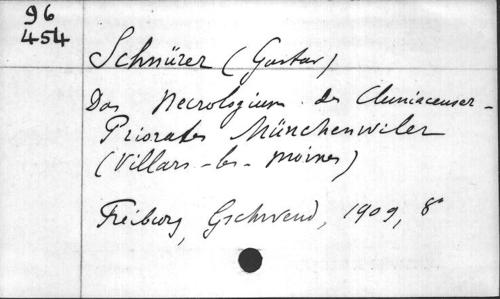 96
454
Schnürer (Gustav)
Das Necrologium des Cluniacenser-
Priorates Münchenwiler
(Villars-les-Moines)
Freiburg, Gschwend, 1909, 8°